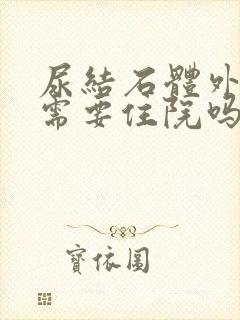 尿結石體外
需要住院吗
寶依圖